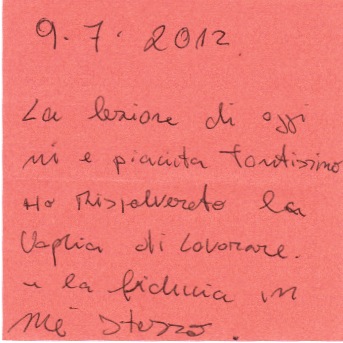 9.7.2012.
La lezione di oggi
mi e piaciuta tantissimo
Ho Rispolverato la
Voglia di lavorare.
e la fiducia in
Me stesso.